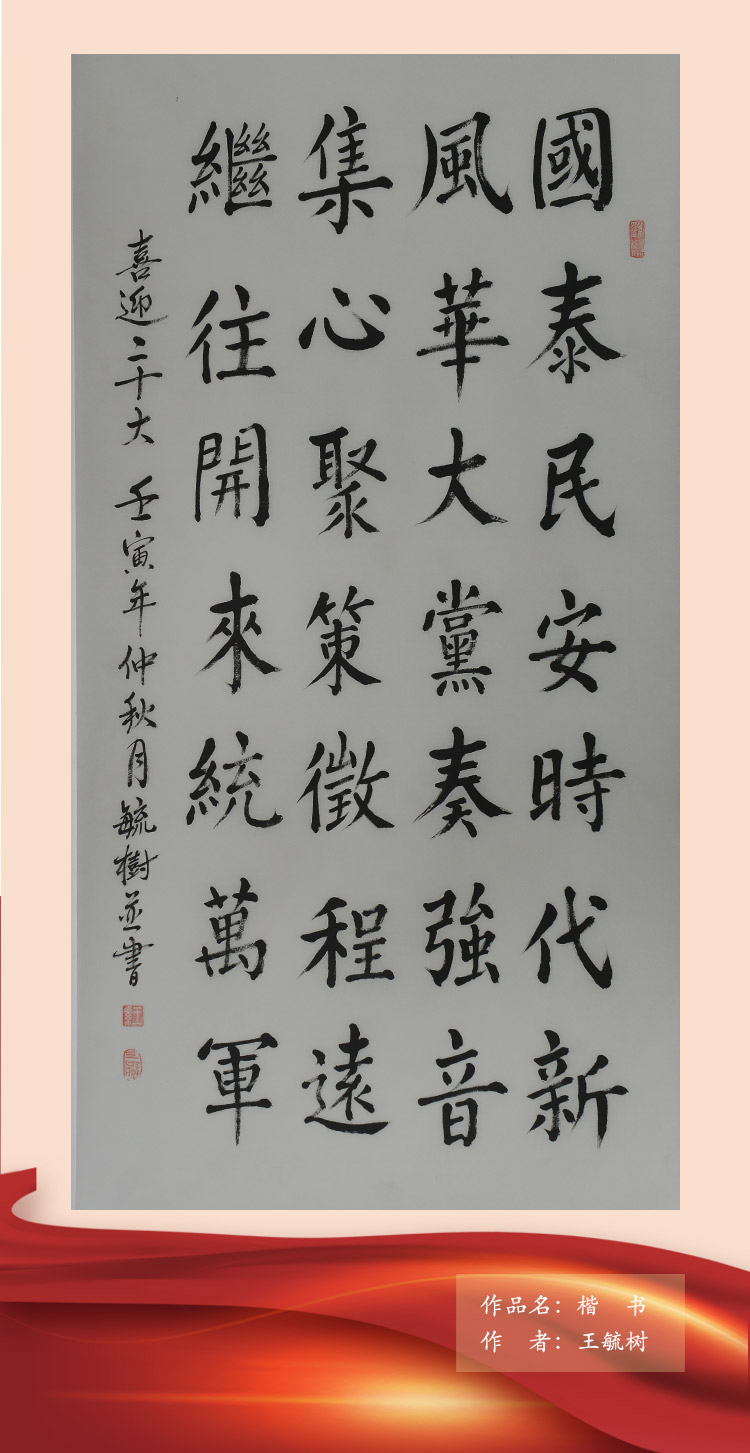 國泰民安時代新
風華大黨奏強音
集心聚策徵程遠
繼往開來統萬軍
喜迎二十大 壬寅年仲秋月毓樹並書
作品名：楷 书
作 者：王毓树